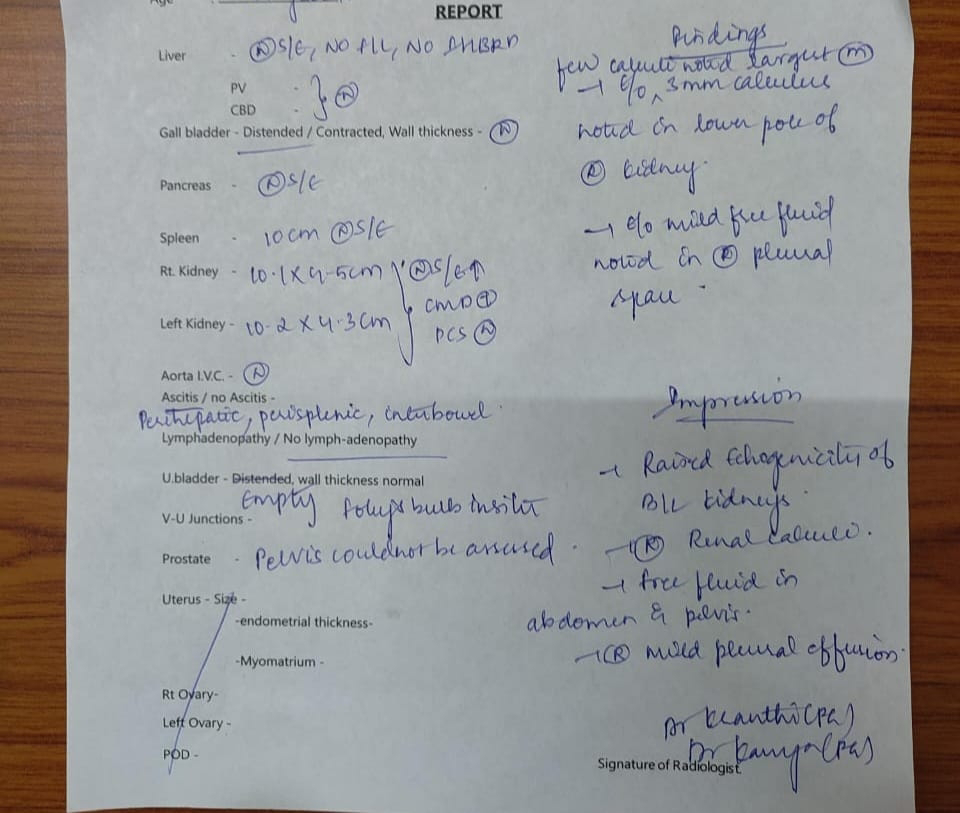 REPORT
Liver - Ⓝ S/E, NO FLL, NO IHBRD
PV -
CBD - } Ⓝ
Gall bladder - Distended / Contracted, Wall thickness - Ⓝ
Pancreas - Ⓝ S/E
Spleen - 10cm Ⓝ S/E
Rt. Kidney - 10.1 X 4.5cm } Ⓝ S/E↑
CMD ⊕
Left Kidney - 10.2 X 4.3cm PCS Ⓝ
Aorta I.V.C. - Ⓝ
Ascitis / no Ascitis -
Perihepatic, perisplenic, interbowel
Lymphadenopathy / No lymph-adenopathy
U.bladder - Distended, wall thickness normal
Empty foleys bulb insitu
V-U Junctions -
Prostate - Pelvis could not be assessed.
Uterus - Size -
-endometrial thickness-
-Myomatrium -
Rt Ovary-
Left Ovary -
POD -
Findings
few calculi noted largest Ⓜ
→ E/o ^ 3mm calculus
noted in lower pole of
Ⓡ kidney.
→ E/o mild free fluid
noted in Ⓡ pleural
space.
Impression
→ Raised Echogenicity of
B/L kidneys.
→ Ⓡ Renal calculi.
→ free fluid in
abdomen & pelvis.
→ Ⓡ mild pleural effusion.
Dr (PG)
Dr (PG)
Signature of Radiologist.